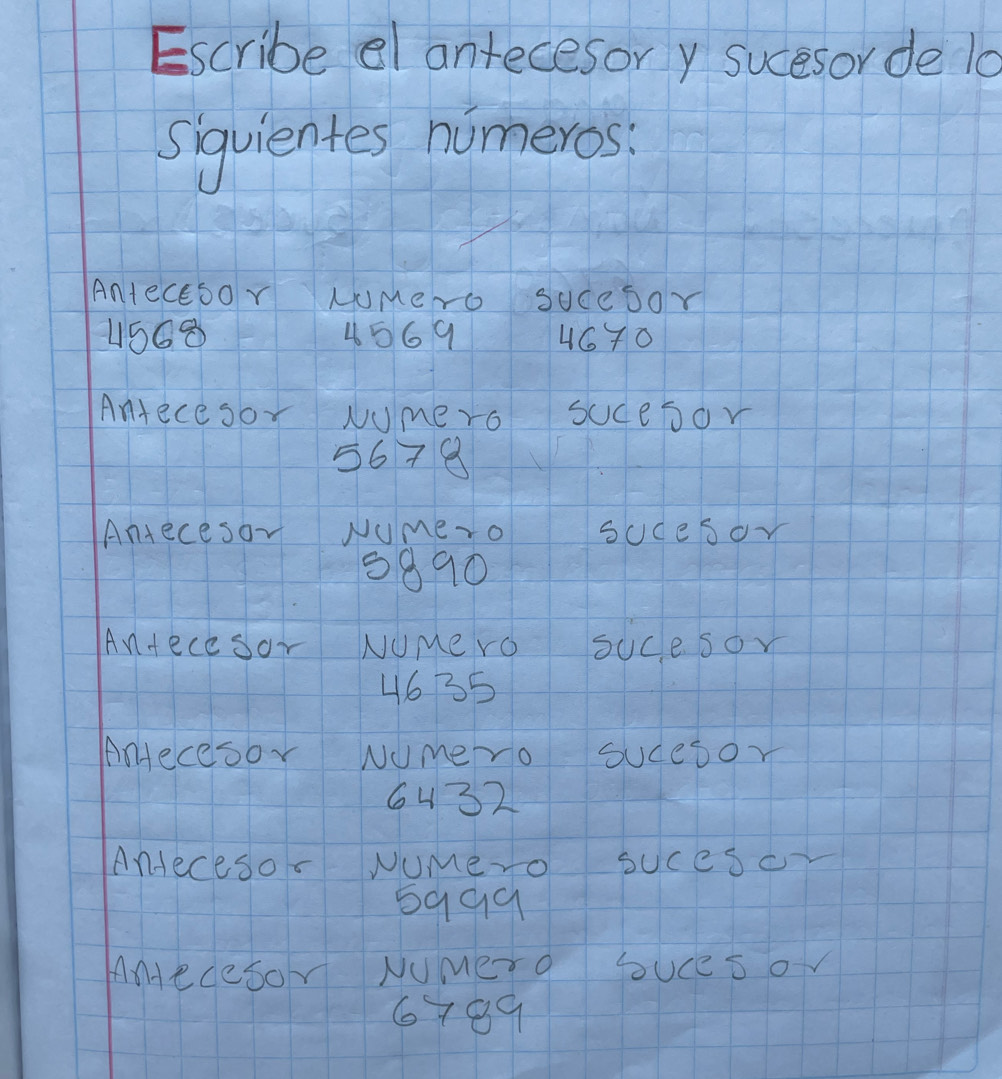 Escribe el antecesor y sucesor de lo
siguientes números:
Antecesor Numero sucesor
4568 4569 4670
Antecesor Numero sucesor
5678
Antecesor Numero sucesor
5890
Antecesor Numero sucesor
4635
Antecesor Numero sucesor
6432
Antecesor Numero sucesor
5999
Antecesor Numero sucesor
6789